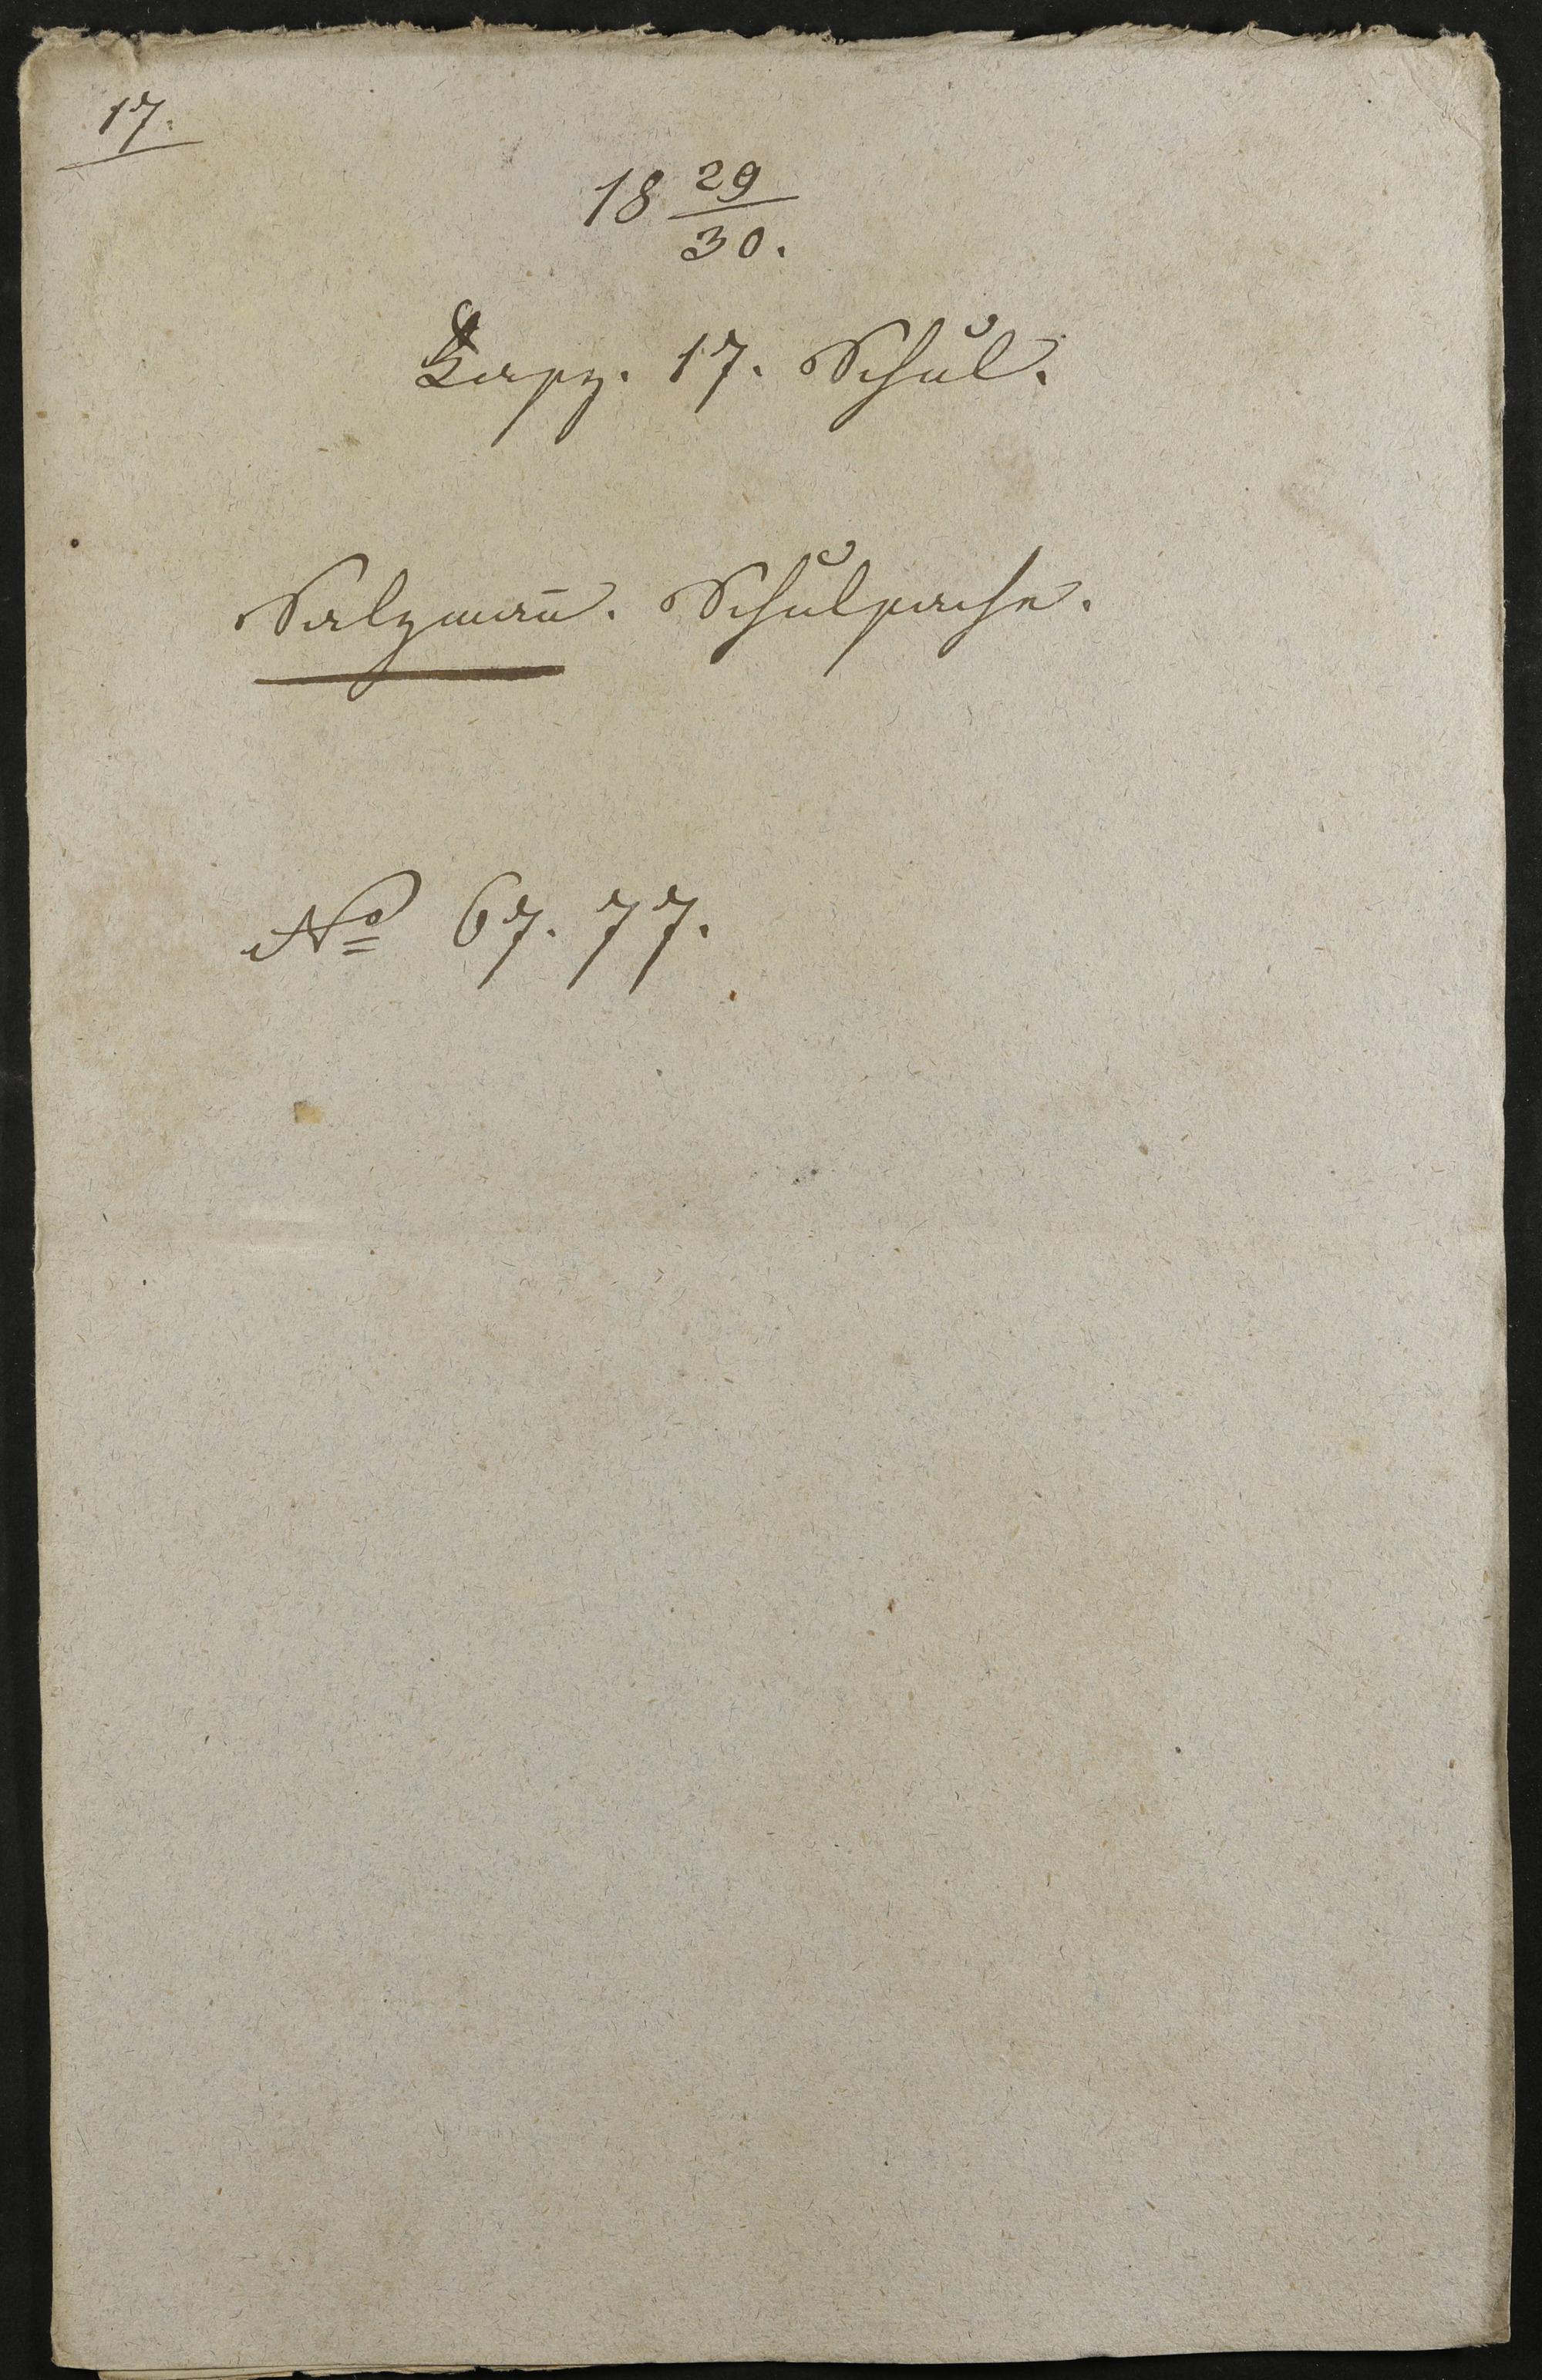 17.
18 29/30.
17. Schul.
Salzman̄. Schulsache.
No 67. 77.